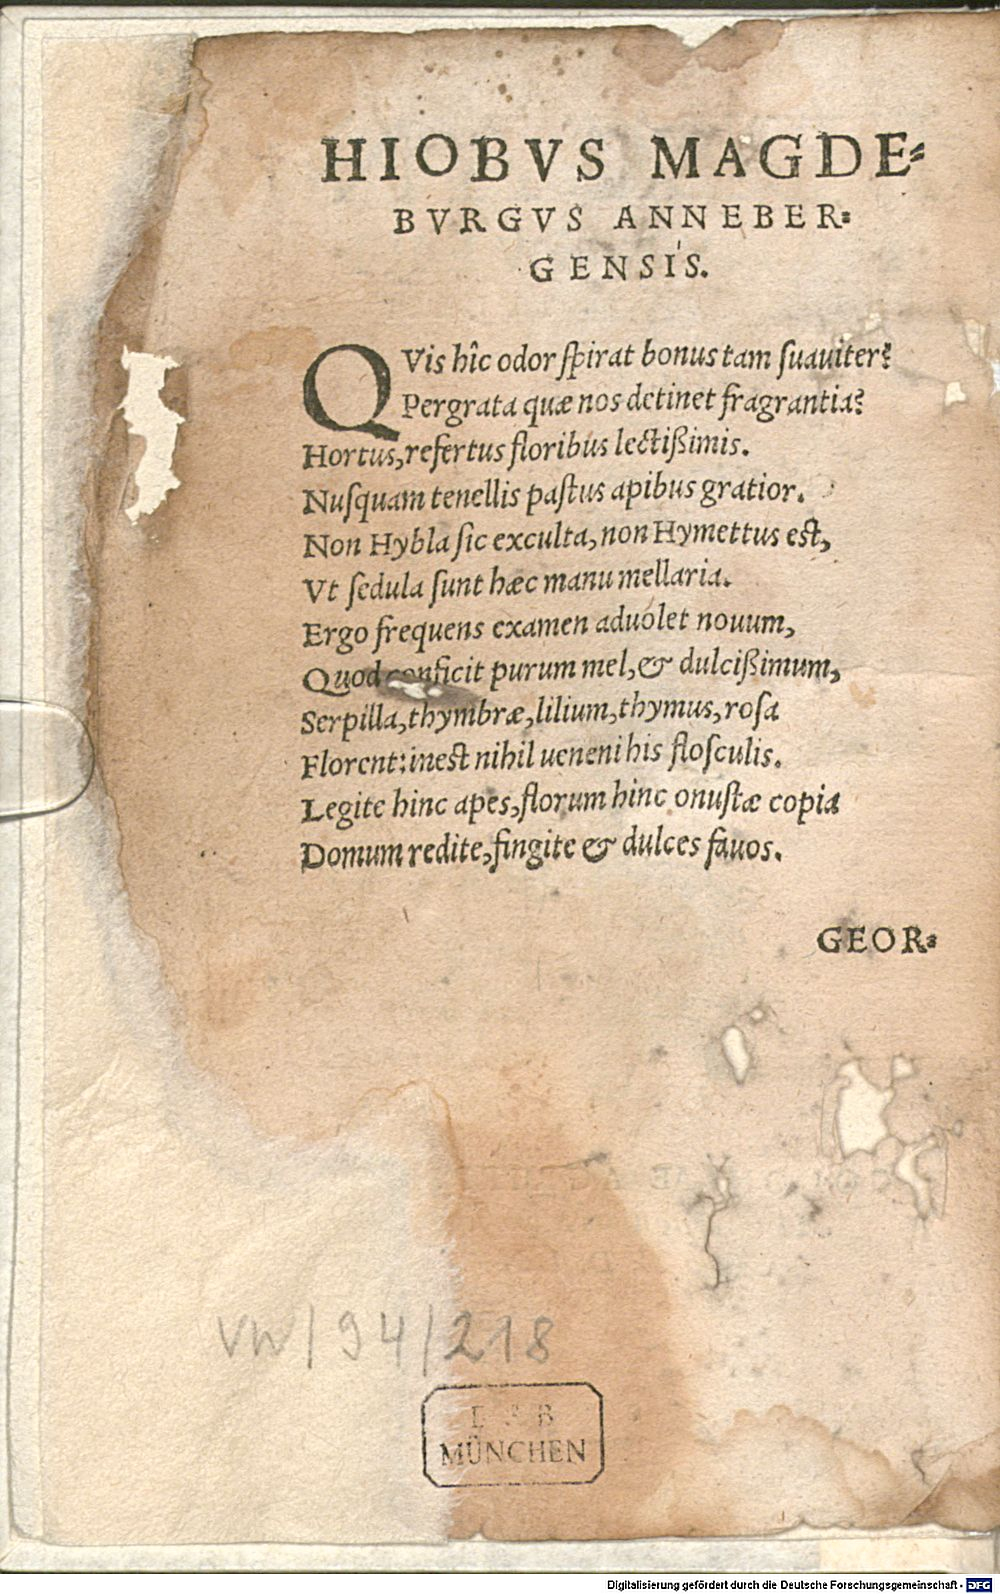 HIOBVS MAGDE-
BVRGVS ANNEBER-
GENSIS.
QVis hîc odor ſpirat bonus tam ſuauiter?
Pergrata quæ nos detinet fragrantia?
Hortus, refertus floribus lectißimis.
Nuſquam tenellis paſtus apibus gratior.
Non Hybla ſic exculta, non Hymettus eſt,
Vt ſedula ſunt hæc manu mellaria.
Ergo frequens examen aduolet nouum,
Quod conficit purum mel, & dulcißimum,
Serpilla, thymbræ, lilium, thymus, roſa
Florent: ineſt nihil ueneni his floſculis.
Legite hinc apes, florum hinc onuſtæ copia
Domum redite, fingite & dulces fauos.
GEOR-
VW/94/218
B
MÜNCHEN
Digitalisierung gefördert durch die Deutsche Forschungsgemeinschaft - DFG